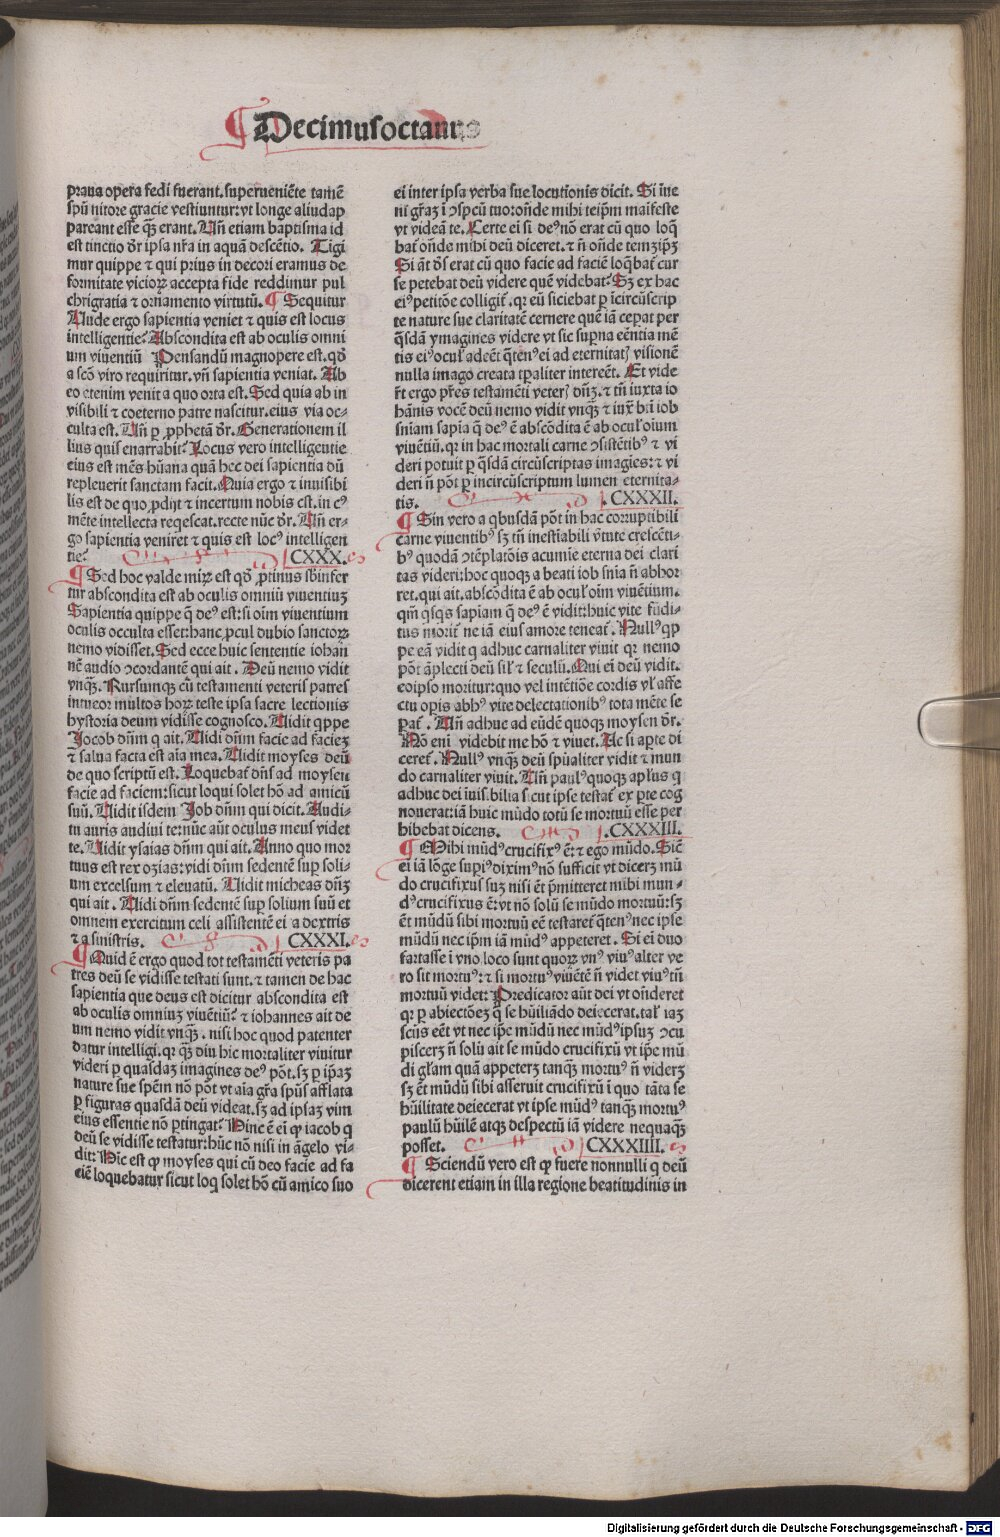 ¶ Decimusoctauus
praua opera fedi fuerant. superueniēte tamē
spū nitore gracie vestiuntur: vt longe aliud ap
pareant esse qꝫ erant. Uñ etiam baptisma id
est tinctio dr̄ ipsa nr̄a in aquā descētio. Tigi
mur quippe ⁊ qui prius in decori eramus de
formitate vicioꝝ accepta fide reddimur pul
chrigratia ⁊ ornamento virtutū. ¶ Sequitur
Unde ergo sapientia veniet ⁊ quis est locus
intelligentie? Abscondita est ab oculis omni
um viuentiū Pensandū magnopere est. qd̄
a scō viro requiritur. vñ sapientia veniat. Ab
eo etenim venit a quo orta est. Sed quia ab in
visibili ⁊ coeterno patre nascitur. eius via oc-
culta est. Uñ ꝑ ꝓphetā dr̄. Generationem il
lius quis enarrabit? Locus vero intelligentie
eius est mēs hūana quā hec dei sapientia dū
repleuerit sanctam facit. Quia ergo ⁊ inuisibi
lis est de quo ꝓdijt ⁊ incertum nobis est. in cꝰ
mēte intellecta reqescat. recte nūc dr̄. Uñ er-
go sapientia veniret ⁊ quis est locꝰ intelligen
tie? CXXX.
¶ Sed hoc valde miꝝ est qd̄ ꝓtinus sb̄infer
tur abscondita est ab oculis omniū viuentiuꝫ
Sapientia quippe q̄ deꝰ est: si oīm viuentium
oculis occulta esset: hanc ꝓcul dubio sanctoꝝ
nemo vidisset. Sed ecce huic sententie iohan
nē audio ↄcordantē qui ait. Deū nemo vidit
vnqꝫ. Rursumqꝫ cū testamenti veteris patres
intueor multos hoꝝ teste ipsa sacre lectionis
hystoria deum vidisse cognosco. Uidit qppe
Jocob dn̄m q ait. Uidi dn̄m facie ad facieꝫ
⁊ salua facta est aīa mea. Uidit moyses deū
de quo scriptū est. Loquebat᷑ dn̄s ad moysen
facie ad faciem: sicut loqui solet hō ad amicū
suū. Uidit isdem Job dn̄m qui dicit. Audi-
tu auris audiui te: nūc aūt oculus meus videt
te. Uidit ysaias dn̄m qui ait. Anno quo mor
tuus est rex ozias: vidi dn̄m sedentē suꝑ soli-
um excelsum ⁊ eleuatū. Uidit micheas dn̄ꝫ
qui ait. Uidi dn̄m sedentē suꝑ solium suū et
omnem exercitum celi assistentē ei a dextris
⁊ a sinistris. CXXXI.
¶ Quid ē ergo quod tot testamēti veteris pa
tres deū se vidisse testati sunt. ⁊ tamen de hac
sapientia que deus est dicitur abscondita est
ab oculis omniuꝫ viuētiū? ⁊ iohannes ait de
um nemo vidit vnqꝫ. nisi hoc quod patenter
datur intelligi. qꝛ qꝫ diu hic mortaliter viuitur
videri ꝑ quasdaꝫ imagines deꝰ pōt. sꝫ ꝑ ip̄aꝫ
nature sue spēm nō pōt vt aīa gr̄a spūs afflata
ꝑ figuras quasdā deū videat. sꝫ ad ipsaꝫ vim
eius essentie nō ꝑtingat? Hinc ē ei ꝙ iacob q
deū se vidisse testatur: hūc nō nisi in āgelo vi-
dit: Hic est ꝙ moyses qui cū deo facie ad fa
ciē loquebatur sicut loq̄ solet hō cū amico suo
ei inter ipsa verba sue locutionis dicit. Si īue
ni gr̄aꝫ ī ↄspcū tuo: on̄de mihi teip̄m maīfeste
vt videā te. Certe ei si deꝰ nō erat cū quo loq̄
bat᷑ on̄de mihi deū diceret. ⁊ n̄ on̄de temꝫip̄ꝫ
Si āt dꝰs erat cū quo facie ad faciē loq̄bat᷑ cur
se petebat deū videre quē videbat? Sꝫ ex hac
eiꝰ petitōe colligit᷑. qꝛ eū siciebat ꝑ īcircūscrip
te nature sue claritatē cernere quē iā ceꝑat per
q̄sdā ymagines videre vt sic suꝑna eēntia mē
tis eiꝰ ocul̓ adeēt q̄tenꝰ ei ad eternitatꝭ visionē
nulla imago creata tꝑaliter intereēt. Et vide
rt̄ ergo pr̄es testamēti veterꝭ dn̄ꝫ. ⁊ tn̄ iuxta io
hānis vocē deū nemo vidit vnqꝫ ⁊ iux̄ bt̄i iob
sniam sapīa q̄ deꝰ ē abscōdita ē ab ocul̓ oīum
viuētiū. qꝛ in hac mortali carne ↄsistētibꝰ ⁊ vi
deri potuit ꝑ q̄sdā circūscriptas imagīes: ⁊ vi
deri n̄ pōt ꝑ incircūscriptum lumen eternita-
tis. CXXXII.
¶ Sin vero a qbusdā pōt in hac corruptibili
carne viuentibꝰ sꝫ tn̄ inestīabili v̄tute crescēti-
bꝰ quodā ↄtēplatōis acumīe eterna dei clari
tas videri: hoc quoqꝫ a beati iob snīa n̄ abhor
ret. qui ait. abscōdita ē ab ocul̓ oīm viuētium.
qm̄ qsqꝫ sapīam q̄ deꝰ ē vidit: huic vite fūdi-
tus morit᷑ ne iā eius amore teneat᷑. Nullꝰ qp
pe eā vidit q adhuc carnaliter viuit qꝛ nemo
pōt āplecti deū sil̓ ⁊ seculū. Qui ei deū vidit.
eoipso moritur: quo vel intētiōe cordis vl̓ affe
ctu opis abbꝰ vite delectationibꝰ tota mēte se
ꝑat᷑. Uñ adhuc ad eūdē quoqꝫ moysen dr̄.
Nō eni videbit me hō ⁊ viuet. Ac si aꝑte di
ceret᷑. Nullꝰ vnqꝫ deū spūaliter vidit ⁊ mun
do carnaliter viuit. Uñ paulꝰ quoqꝫ apl̓us q
adhuc dei īuisibilia sicut ipse testat᷑ ex ꝑte cog
nouerat: iā huic mūdo totū se mortuū esse per
hibebat dicens. CXXXIII.
¶ Mihi mūdꝰ crucifixꝰ ē: ⁊ ego mūdo. Sic̄
ei iā lōge supiꝰ diximꝰ nō sufficit vt dicerꝫ mū
do crucifixuꝫ suꝫ nisi ēt p̄mitteret mihi mun-
dꝰ crucifixus ē: vt nō solū se mūdo mortuū: sꝫ
ēt mūdū sibi mortuū eē testaret᷑ q̄tenꝰ nec ipse
mūdū nec ip̄m iā mūdꝰ appeteret. Si ei duo
fartasse ī vno loco sunt quoꝝ vnꝰ viuꝰ alter ve
ro sit mortuꝰ: ⁊ si mortuꝰ viuētē n̄ videt viuꝰ tn̄
mortuū videt: Predicator aūt dei vt on̄deret
qꝛ ꝑ abiectōeꝫ q̄ se hūiliādo deiecerat. tal̓ iaꝫ
scūs eēt vt nec ip̄e mūdū nec mūdꝰ ipsuꝫ ↄcu
piscerꝫ n̄ solū ait se mūdo crucifixū vt ip̄e mū
di gl̓am quā appeterꝫ tanqꝫ mortuꝰ n̄ viderꝫ
sꝫ ēt mūdū sibi asseruit crucifixū ī quo tāta se
hūilitate deiecerat vt ipse mūdꝰ tanqꝫ mortuꝰ
paulū hūilē atqꝫ despectū iā videre nequaqꝫ
posset. CXXXIIII.
¶ Sciendū vero est ꝙ fuere nonnulli q deū
dicerent etiam in illa regione beatitudinis in
Digitalisierung gefördert durch die Deutsche Forschungsgemeinschaft - DFG